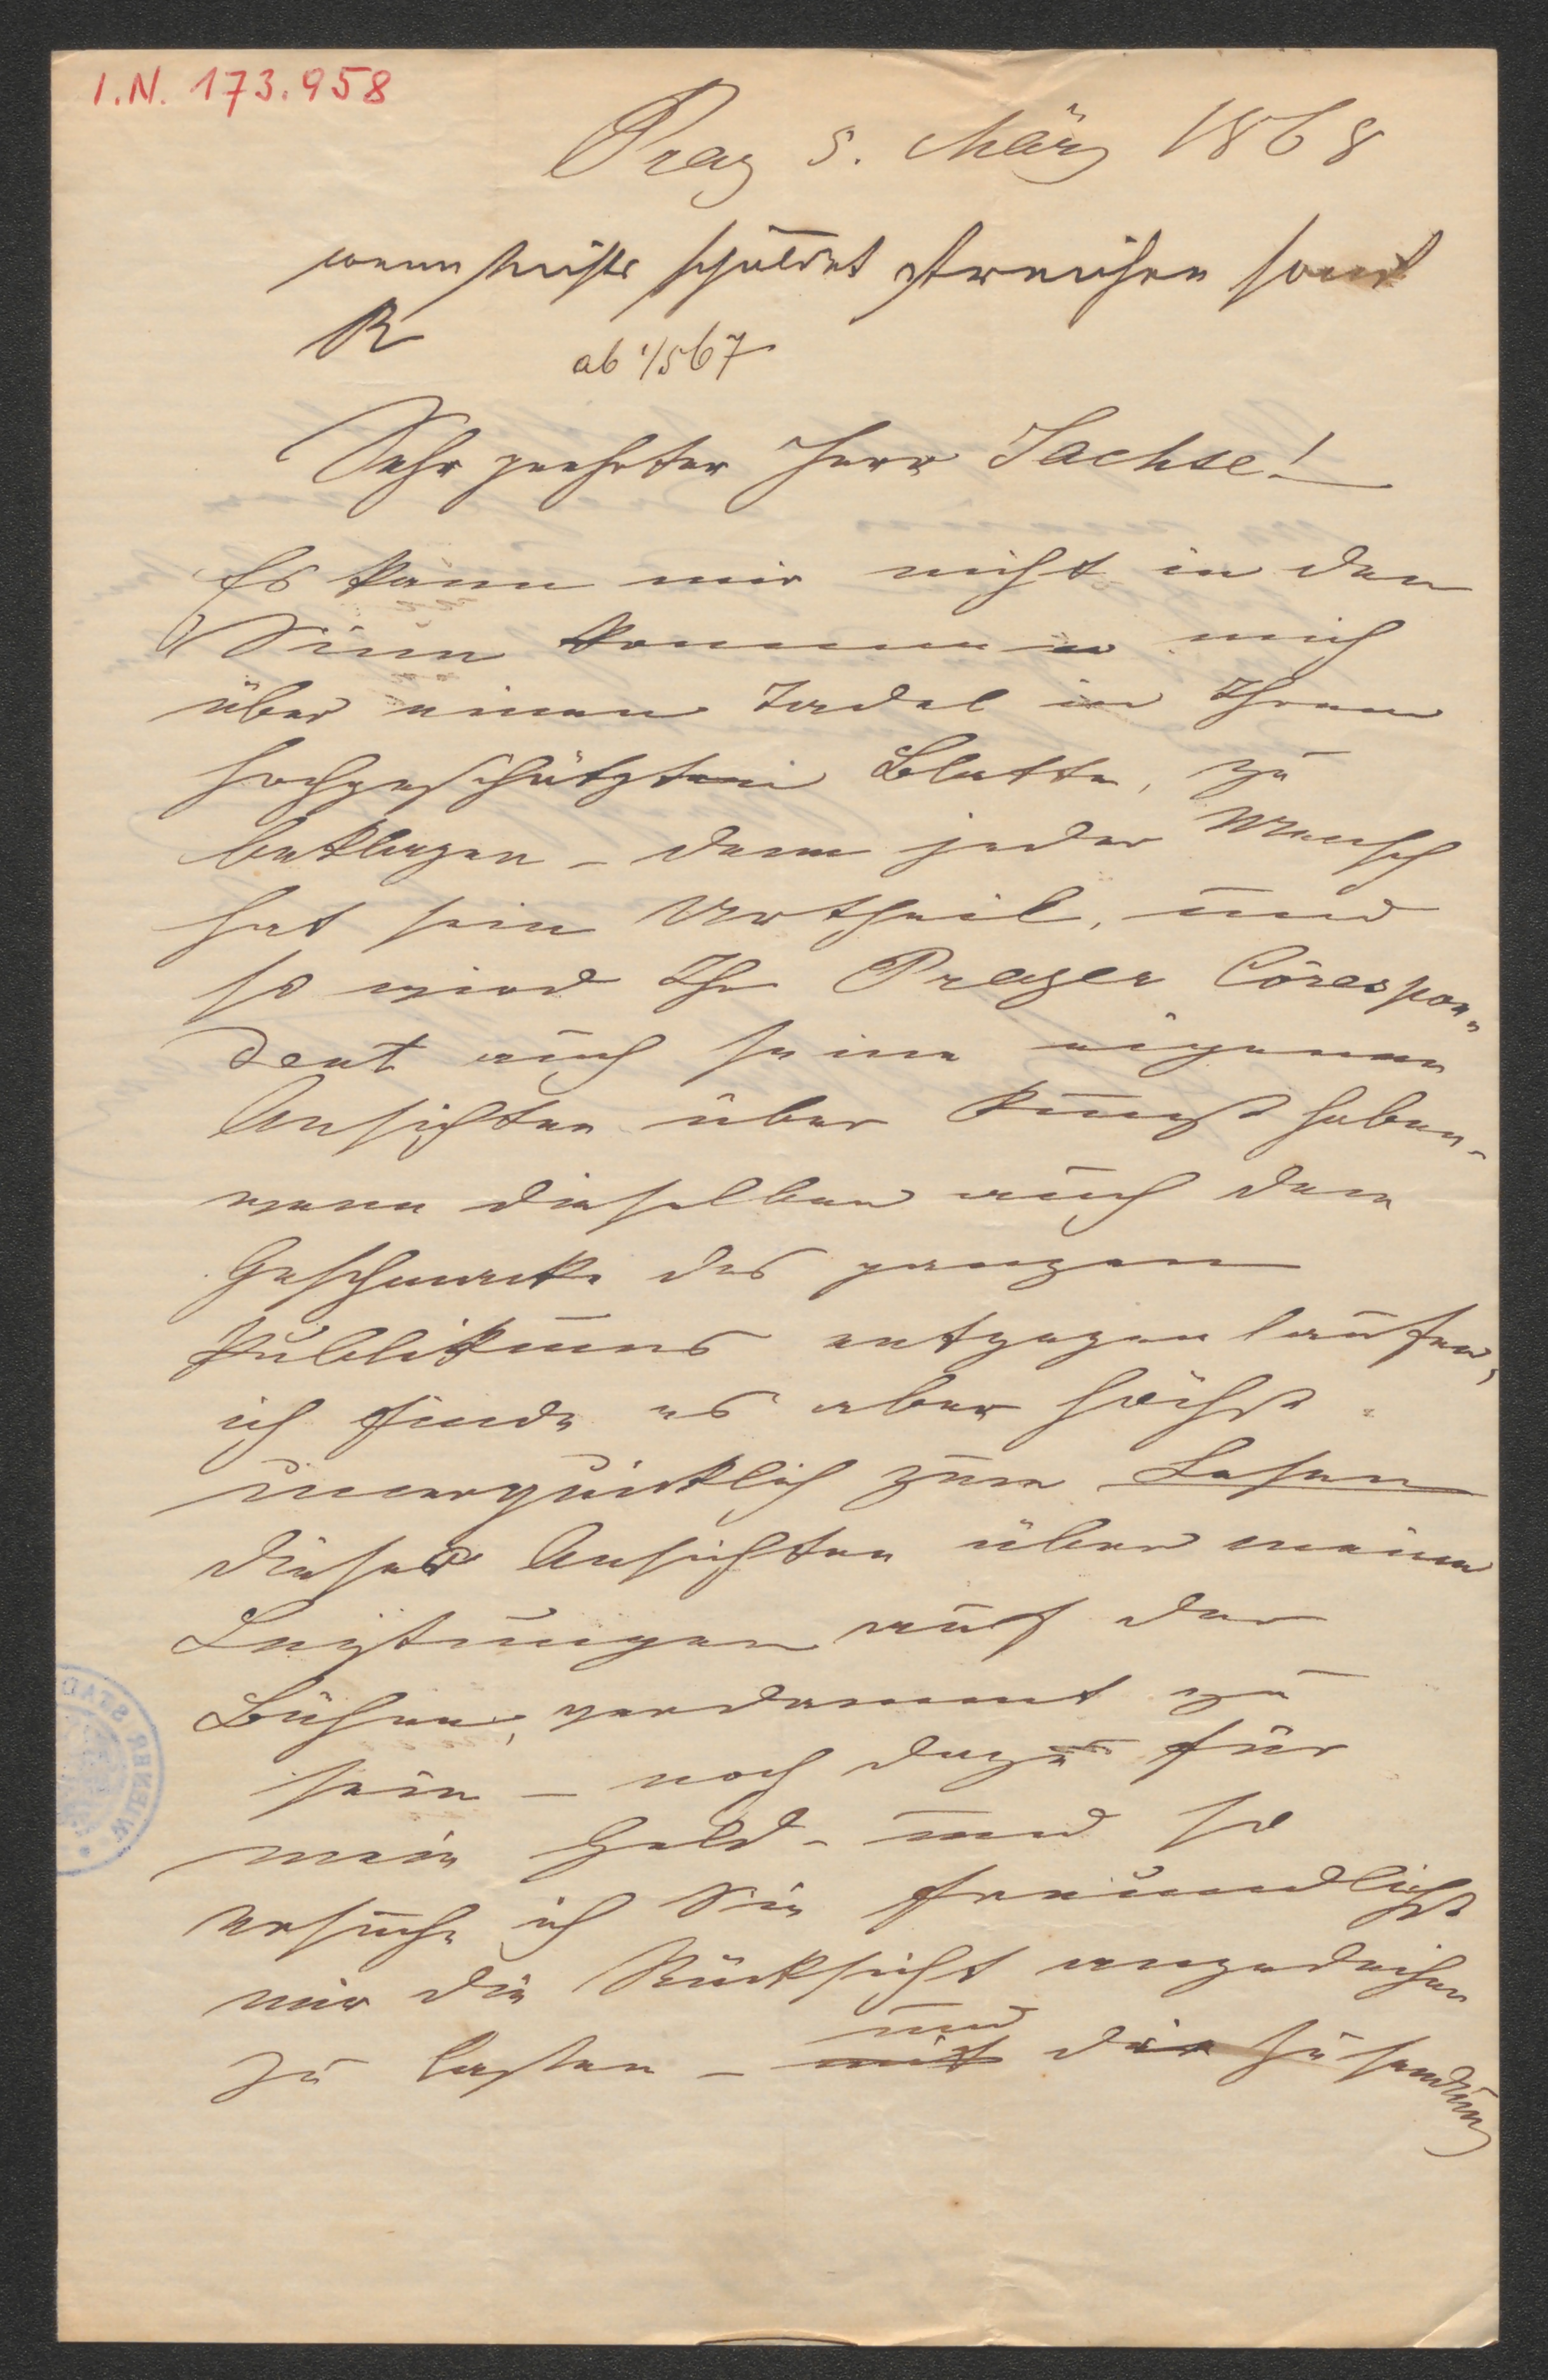 I.N. 173.958
Prag 5. März 1868
wenn nichts schuldet streichen sonst
R
ab 1/5 67
Sehr geehrter Herr Sachse!
Es kann mir nicht in den
Sinn kommen mich
über einen Tadel in Ihrem
hochgeschätzten Blatte, zu
beklagen – denn jeder Mensch
hat sein Urtheil, und
so wird Ihr Prager Corespon„
dent auch seine eigenen
Ansichten über Kunst haben –
wenn dieselben auch dem
Geschmacke des ganzen
Publikums entgegen laufen,
ich finde es aber höchst
unerquicklich zum Lesen
dieser Ansichten über meine
Leistungen auf der
Bühne, verdammt zu
sein – noch dazu für
mein Geld – und so
ersuche ich Sie freundlichst
mir die Rücksicht angedeihen
und
zu lassen – mit die Zusendung
WIENER STAD